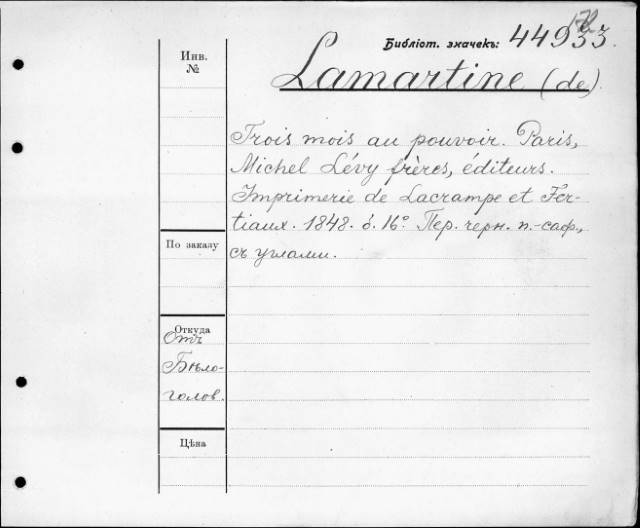 Библіот. значекъ: 44933.
Инв.
№
Lamartine (de)
Trois mois au pouvoir. Paris,
Michel Lévy frères, éditeurs.
Imprimerie de Lacrampe et Fer-
tiaux. 1848. б. 16° Пер. черн. п.-саф.,
съ углами.
По заказу
Откуда
Отъ
Бѣло-
голов.
Цѣна